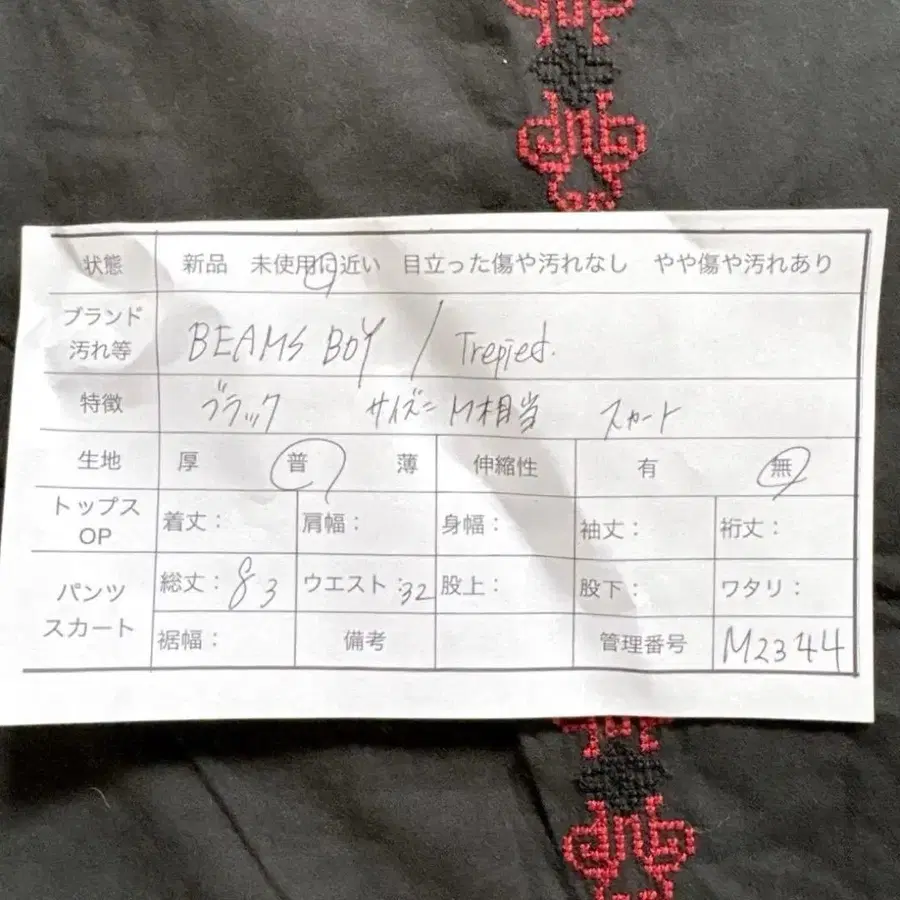 状態 新品 未使用に近い 目立った傷や汚れなし やや傷や汚れあり
ブランド 汚れ等 BEAMS BOY / Trepied.
特徴 ブラック サイズ= M相当 スカート
生地 厚 普 薄 伸縮性 有 無
トップス OP 着丈： 肩幅： 身幅： 袖丈： 裄丈：
パンツ スカート 総丈：83 ウエスト：32 股上： 股下： ワタリ：
裾幅： 備考 管理番号 M2344